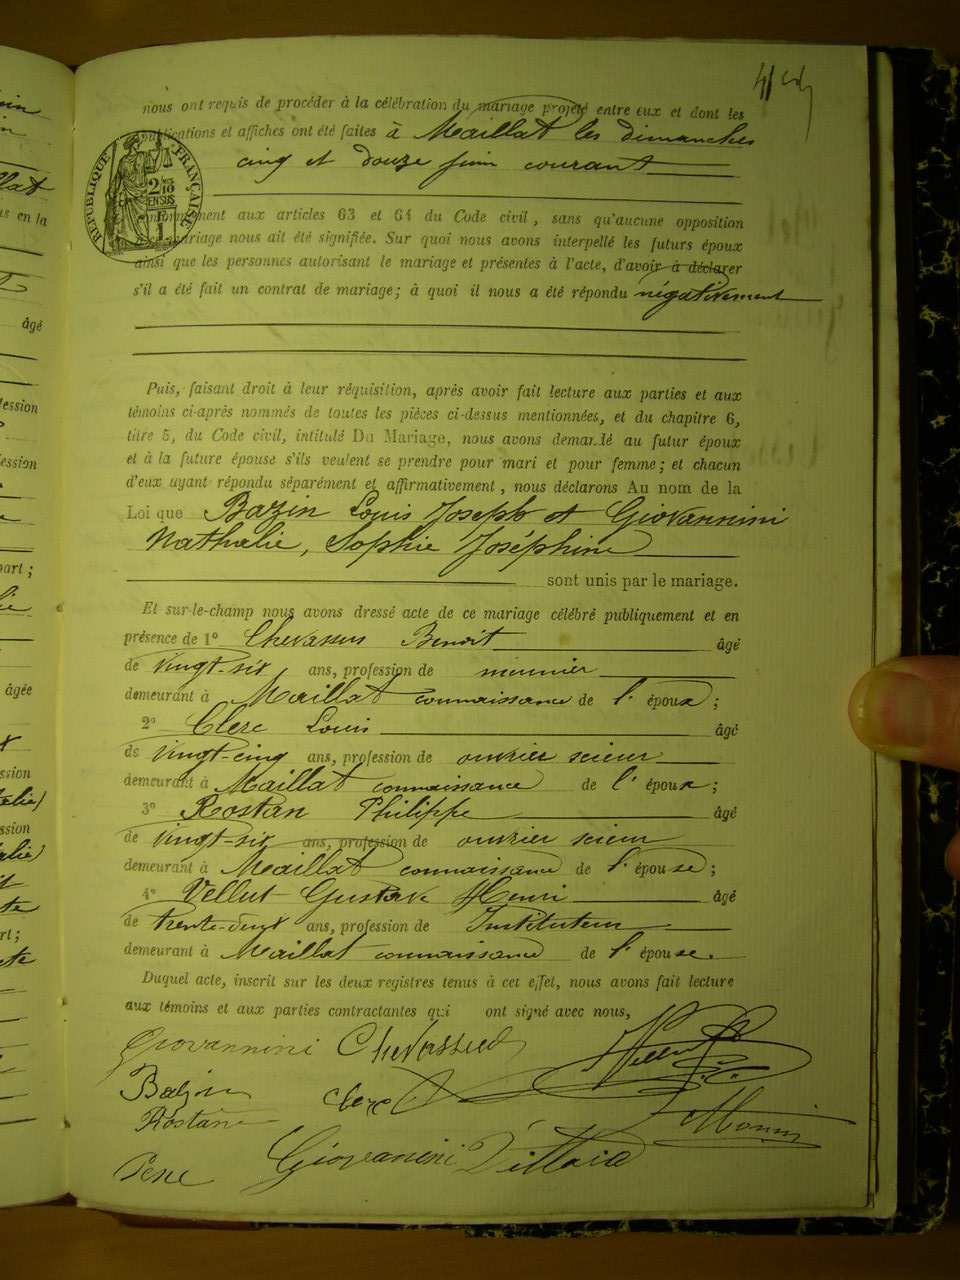 nous ont requis de procéder à la célébration du mariage projeté entre eux et dont les
publications et affiches ont été faites à Maillat les dimanches
cinq et douze juin courant
RÉPUBLIQUE FRANÇAISE
conformément aux articles 63 et 64 du Code civil, sans qu'aucune opposition
mariage nous ait été signifiée. Sur quoi nous avons interpellé les futurs époux
ainsi que les personnes autorisant le mariage et présentes à l'acte, d'avoir à déclarer
s'il a été fait un contrat de mariage; à quoi il nous a été répondu négativement
Puis, faisant droit à leur réquisition, après avoir fait lecture aux parties et aux
témoins ci-après nommés de toutes les pièces ci-dessus mentionnées, et du chapitre 6,
titre 5, du Code civil, intitulé Du Mariage, nous avons demandé au futur époux
et à la future épouse s'ils veulent se prendre pour mari et pour femme; et chacun
d'eux ayant répondu séparément et affirmativement, nous déclarons Au nom de la
Loi que Bazin Louis Joseph et Giovannini
Nathalie, Sophie Joséphine
sont unis par le mariage.
Et sur-le-champ nous avons dressé acte de ce mariage célébré publiquement et en
présence de 1° Chevassus Benoit âgé
de vingt-six ans, profession de meunier
demeurant à Maillat connaissance de l'époux;
2° Clerc Louis âgé
de vingt-cinq ans, profession de ouvrier scieur
demeurant à Maillat connaissance de l'époux;
3° Rostan Philippe âgé
de vingt-six ans, profession de ouvrier scieur
demeurant à Maillat connaissance de l'épouse;
4° Vellut Gustave Henri âgé
de trente-deux ans, profession de Instituteur
demeurant à Maillat connaissance de l'épouse.
Duquel acte, inscrit sur les deux registres tenus à cet effet, nous avons fait lecture
aux témoins et aux parties contractantes qui ont signé avec nous,
Giovannini Chevassus Vellut
Bazin Clerc
Rostan Monin
Giovannini